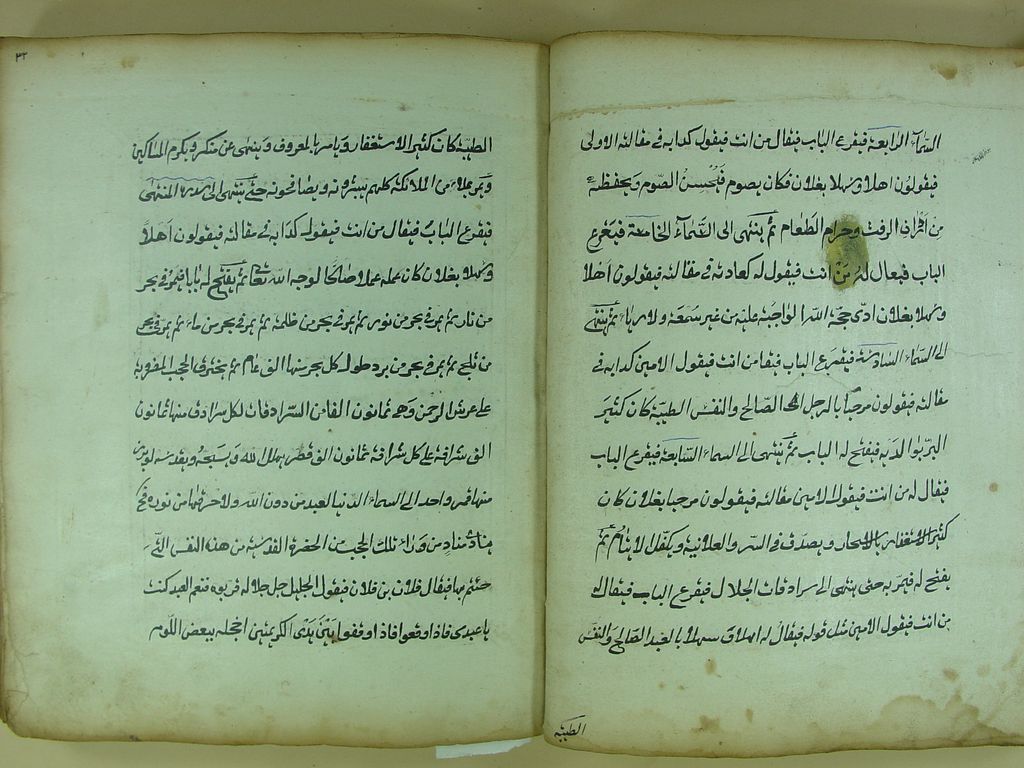 السمآء الرابعة فيقرع الباب فيقال من انت فيقول كدابه في مقالته الاولى
فيقولون اهلا وسهلا بفلان فكان يصوم فيحسن الصوم ويحفظه
من ادران الرفث وحرام الطعام ثم ينتهى الى السمآء الخامسة فيقرع
الباب فيقال له من انت فيقول له كعادته في مقالته فيقولون اهلا
وسهلا بفلان ادى حجة الله الواجبة عليه من غير سمعة ولا رياء ثم ينتهى
الى السماء السادسة فيقرع الباب فيقا من انت فيقول الامين كدابه في
مقالته فيقولون مرحبا بالرجل الصالح والنفس الطيبة كان كثير
البر بوالديه فيفتح له الباب ثم ينتهى الى السماء السابعة فيقرع الباب
فيقال له من انت فيقول الامين مقالته فيقولون مرحبا بفلان كان
كثير الاستغفار بالاسحار ويصدق في السر والعلانية ويكفل الايتام ثم
يفتح له فيمر به حتى ينتهى الى سرادقات الجلال فيقرع الباب فيقال له
من انت فيقول الامين مثل قوله فيقال له اهلا وسهلا بالعبد الصالح والنفس
الطيبة
٣٢
الطيبة كان كثير الاستغفار ويامر بالمعروف وينهى عن منكر ويكرم المساكين
ويمر بملاء من الملائكة كلهم يبشرونه ويصافحونه حتى ينتهى الى سدرة المنتهى
فيقرع الباب فيقال من انت فيقول كدابه في مقالته فيقولون اهلا
وسهلا بفلان كان عمله عملا صالحا لوجه الله تعالى ثم يفتح له بابا فيمر في بحر
من نار ثم يمر في بحر من نور ثم يمر في بحر من ظلمة ثم يمر في بحر من ماء ثم يمر في بحر
من ثلج ثم يمر في بحر من برد طول كل بحر منها الف عام ثم يخترق الحجب المضروبة
على عرش الرحمن وهى ثمانون الفا من السرادقات لكل سرادق منها ثمانون
الف شرافة على كل شرافة ثمانون الف قمر يهلل الله ويسبحه ويقدسه لو برز
منها قمر واحد الى السماء الدنيا لعبد من دون الله ولاحرقها من نوره فح
يناد مناد من وراء تلك الحجب من الحضرة القدسية من هذه النفس التي
جئتم بها فيقال فلان بن فلان فيقول الجليل جل جلاله قربوه فنعم العبد كنت
يا عبدى فاذا وقفوا فاذا وقفوا بين يدى الكريم اخجله ببعض اللوم